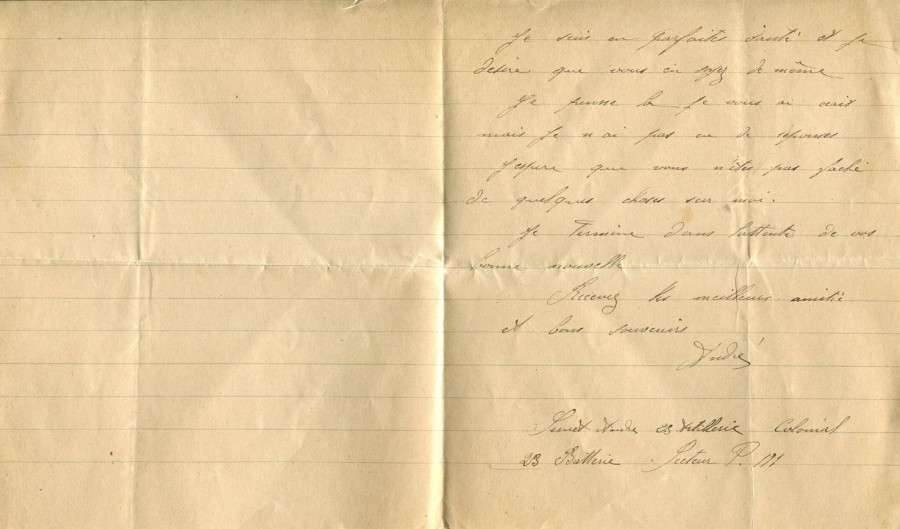 Je suis en parfaites santé et je
désire que vous en soyez de même
Je pense la je vous ai écrit
mais je n ai pas eu de réponses
J'espere que vous n'êtes pas faché
de quelques choses sur moi.
Je Termine dans l'attente de vos
bonne nouvelle
Recevez les meilleurs amitié
et bons souvenirs
André
André 23 Artillerie Colonial
23 Batterie . Secteur P.